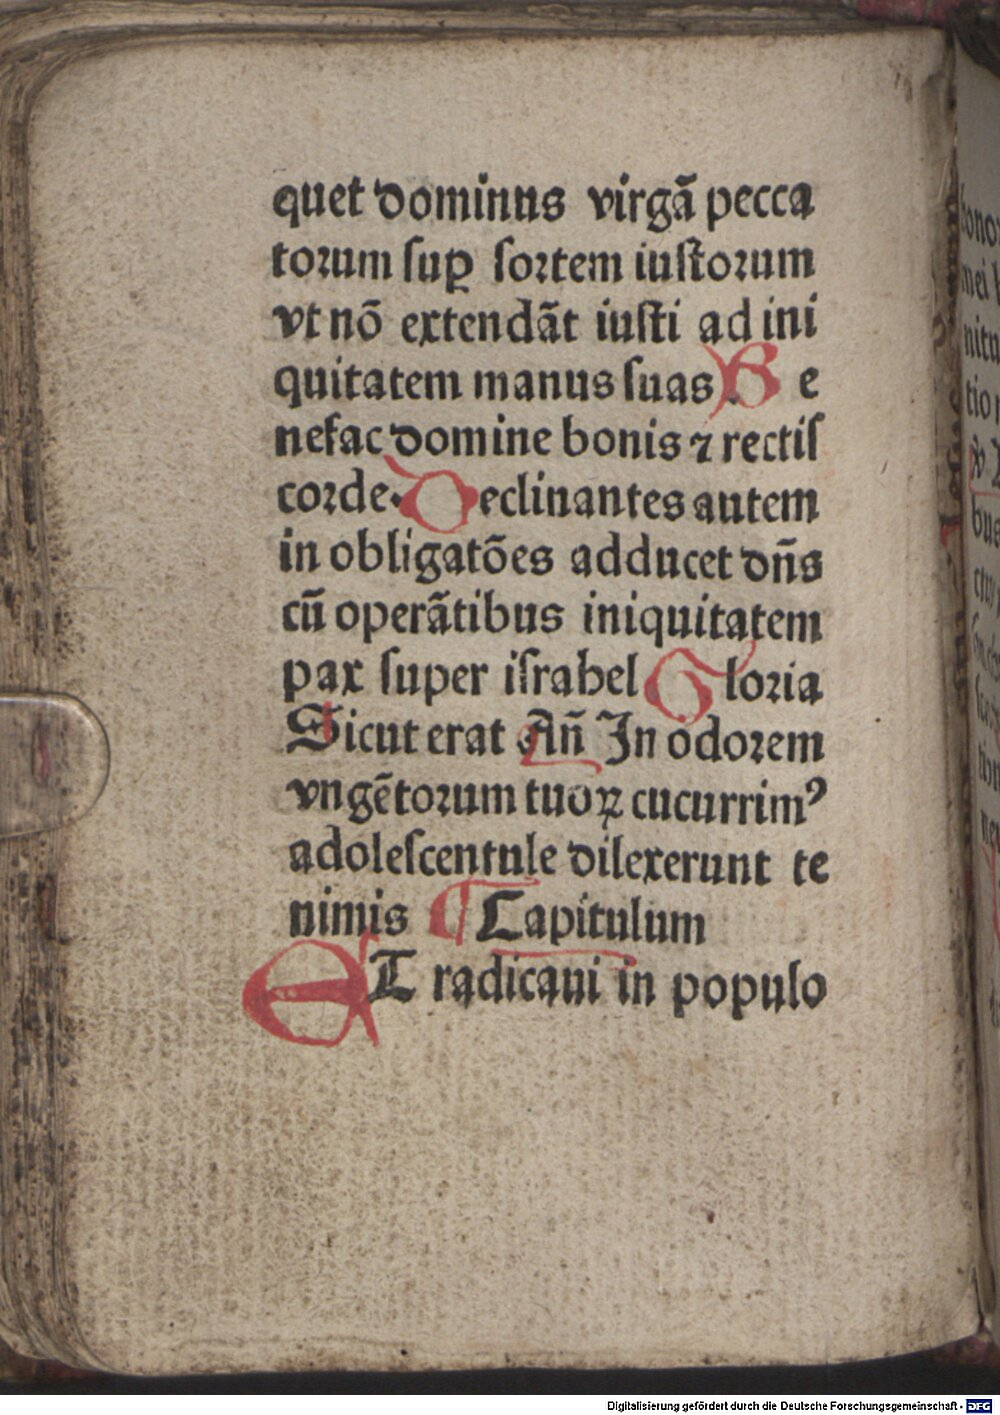 quet dominus virgã pecca
torum ſuꝑ ſortem iuſtorum
vt nõ extendãt iuſti ad ini
quitatem manus ſuas. B e
nefac domine bonis ⁊ rectiſ
corde. Declinantes autem
in obligatões adducet dñs
cũ operãtibus iniquitatem
pax super iſrahel Gloria
Sicut erat Añ In odorem
vngẽtorum tuoꝝ cucurrimꝰ
adoleſcentule dilexerunt te
nimis ¶ Capitulum
ET radicaui in populo
Digitalisierung gefördert durch die Deutsche Forschungsgemeinschaft - DFG